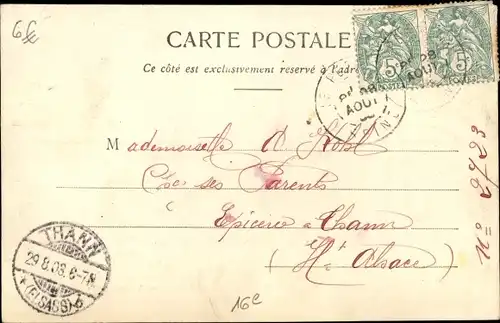 6 fx
CARTE POSTALE
Ce côté est exclusivement réservé à l'adre
5 5
28
AOUT
Mademoiselle A. Robl
C/o ses Parents
Epicerie à Thann
(Hte Alsace)
THANN
29.8.06.6-7N.
*(ELSASS)*
16e
N= 2623